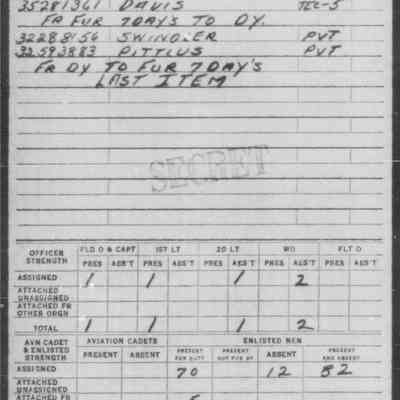 35281361 DAVIS TEC-5
FR FUR 7DAYS TO DY.
32288156 SWINDLER PVT
32593883 PITTIUS PVT
FR DY TO FUR 7DAY'S
LAST ITEM
SECRET
OFFICER STRENGTH FLD O & CAPT 1ST LT 2D LT WO FLT O
PRES ABS'T PRES ABS'T PRES ABS'T PRES ABS'T PRES ABS'T
ASSIGNED 1 1 1 2
ATTACHED UNASSIGNED
ATTACHED FR OTHER ORGN
TOTAL 1 1 1 2
AVN CADET & ENLISTED STRENGTH AVIATION CADETS ENLISTED MEN
PRESENT ABSENT PRESENT FOR DUTY PRESENT NOT FOR DY ABSENT PRESENT AND ABSENT
ASSIGNED 70 12 82
ATTACHED UNASSIGNED
ATTACHED FR